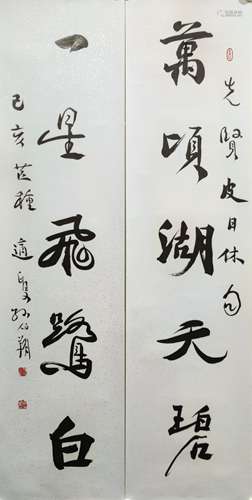 萬頃湖天碧
先賢皮日休句
一星飛鷺白
己亥芒種